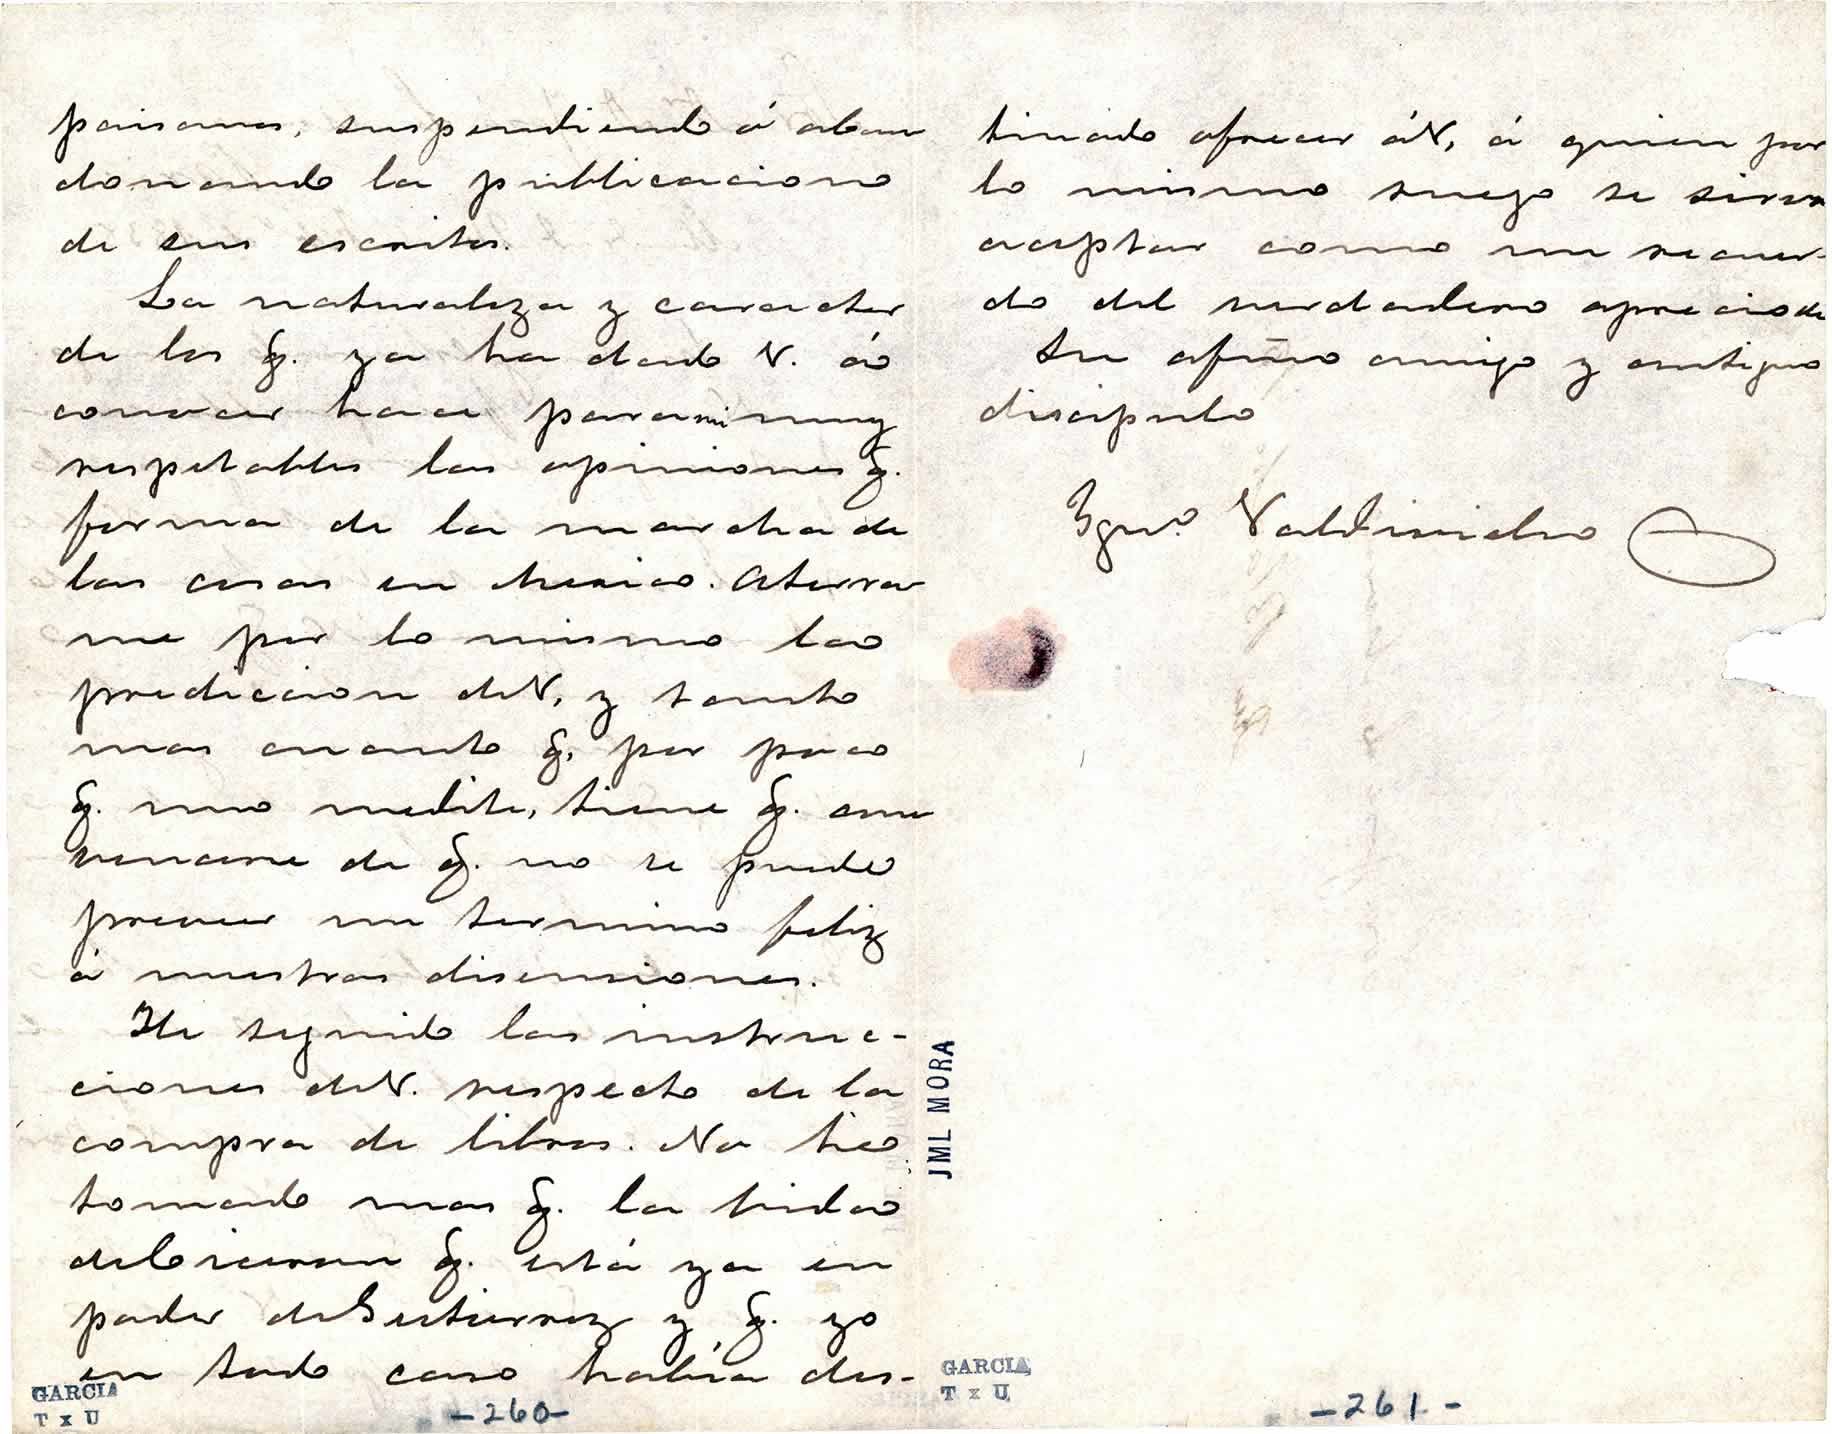 paisanos, suspendiendo ó aban
donando la publicacion
de sus escritos.
La naturaleza y caracter
de los q. ya ha dado V. á
conocer hace para mi muy
respetables las opiniones q.
forma de la marcha de
las cosas en Mexico. Aterra
me por lo mismo la
prediccion de V, y tanto
mas cuanto q, por poco
q. uno medite, tiene q. con
vencerse de q. no se puede
preveer un termino feliz
á nuestras disensiones.
He seguido las instruc-
ciones de V. respecto de la
compra de libros. No he
tomado mas q. la Vida
de Ciceron q. está ya en
poder de Gutierrez y q. yo
en todo caso habia des-
GARCIA
T x U
-260-
tinado ofrecer á V, á quien por
lo mismo ruego se sirva
aceptar como un recuer-
do del verdadero aprecio de
su afmo amigo y antiguo
discipulo
Igno. Valdivielso
JML MORA
GARCIA
T x U
-261-